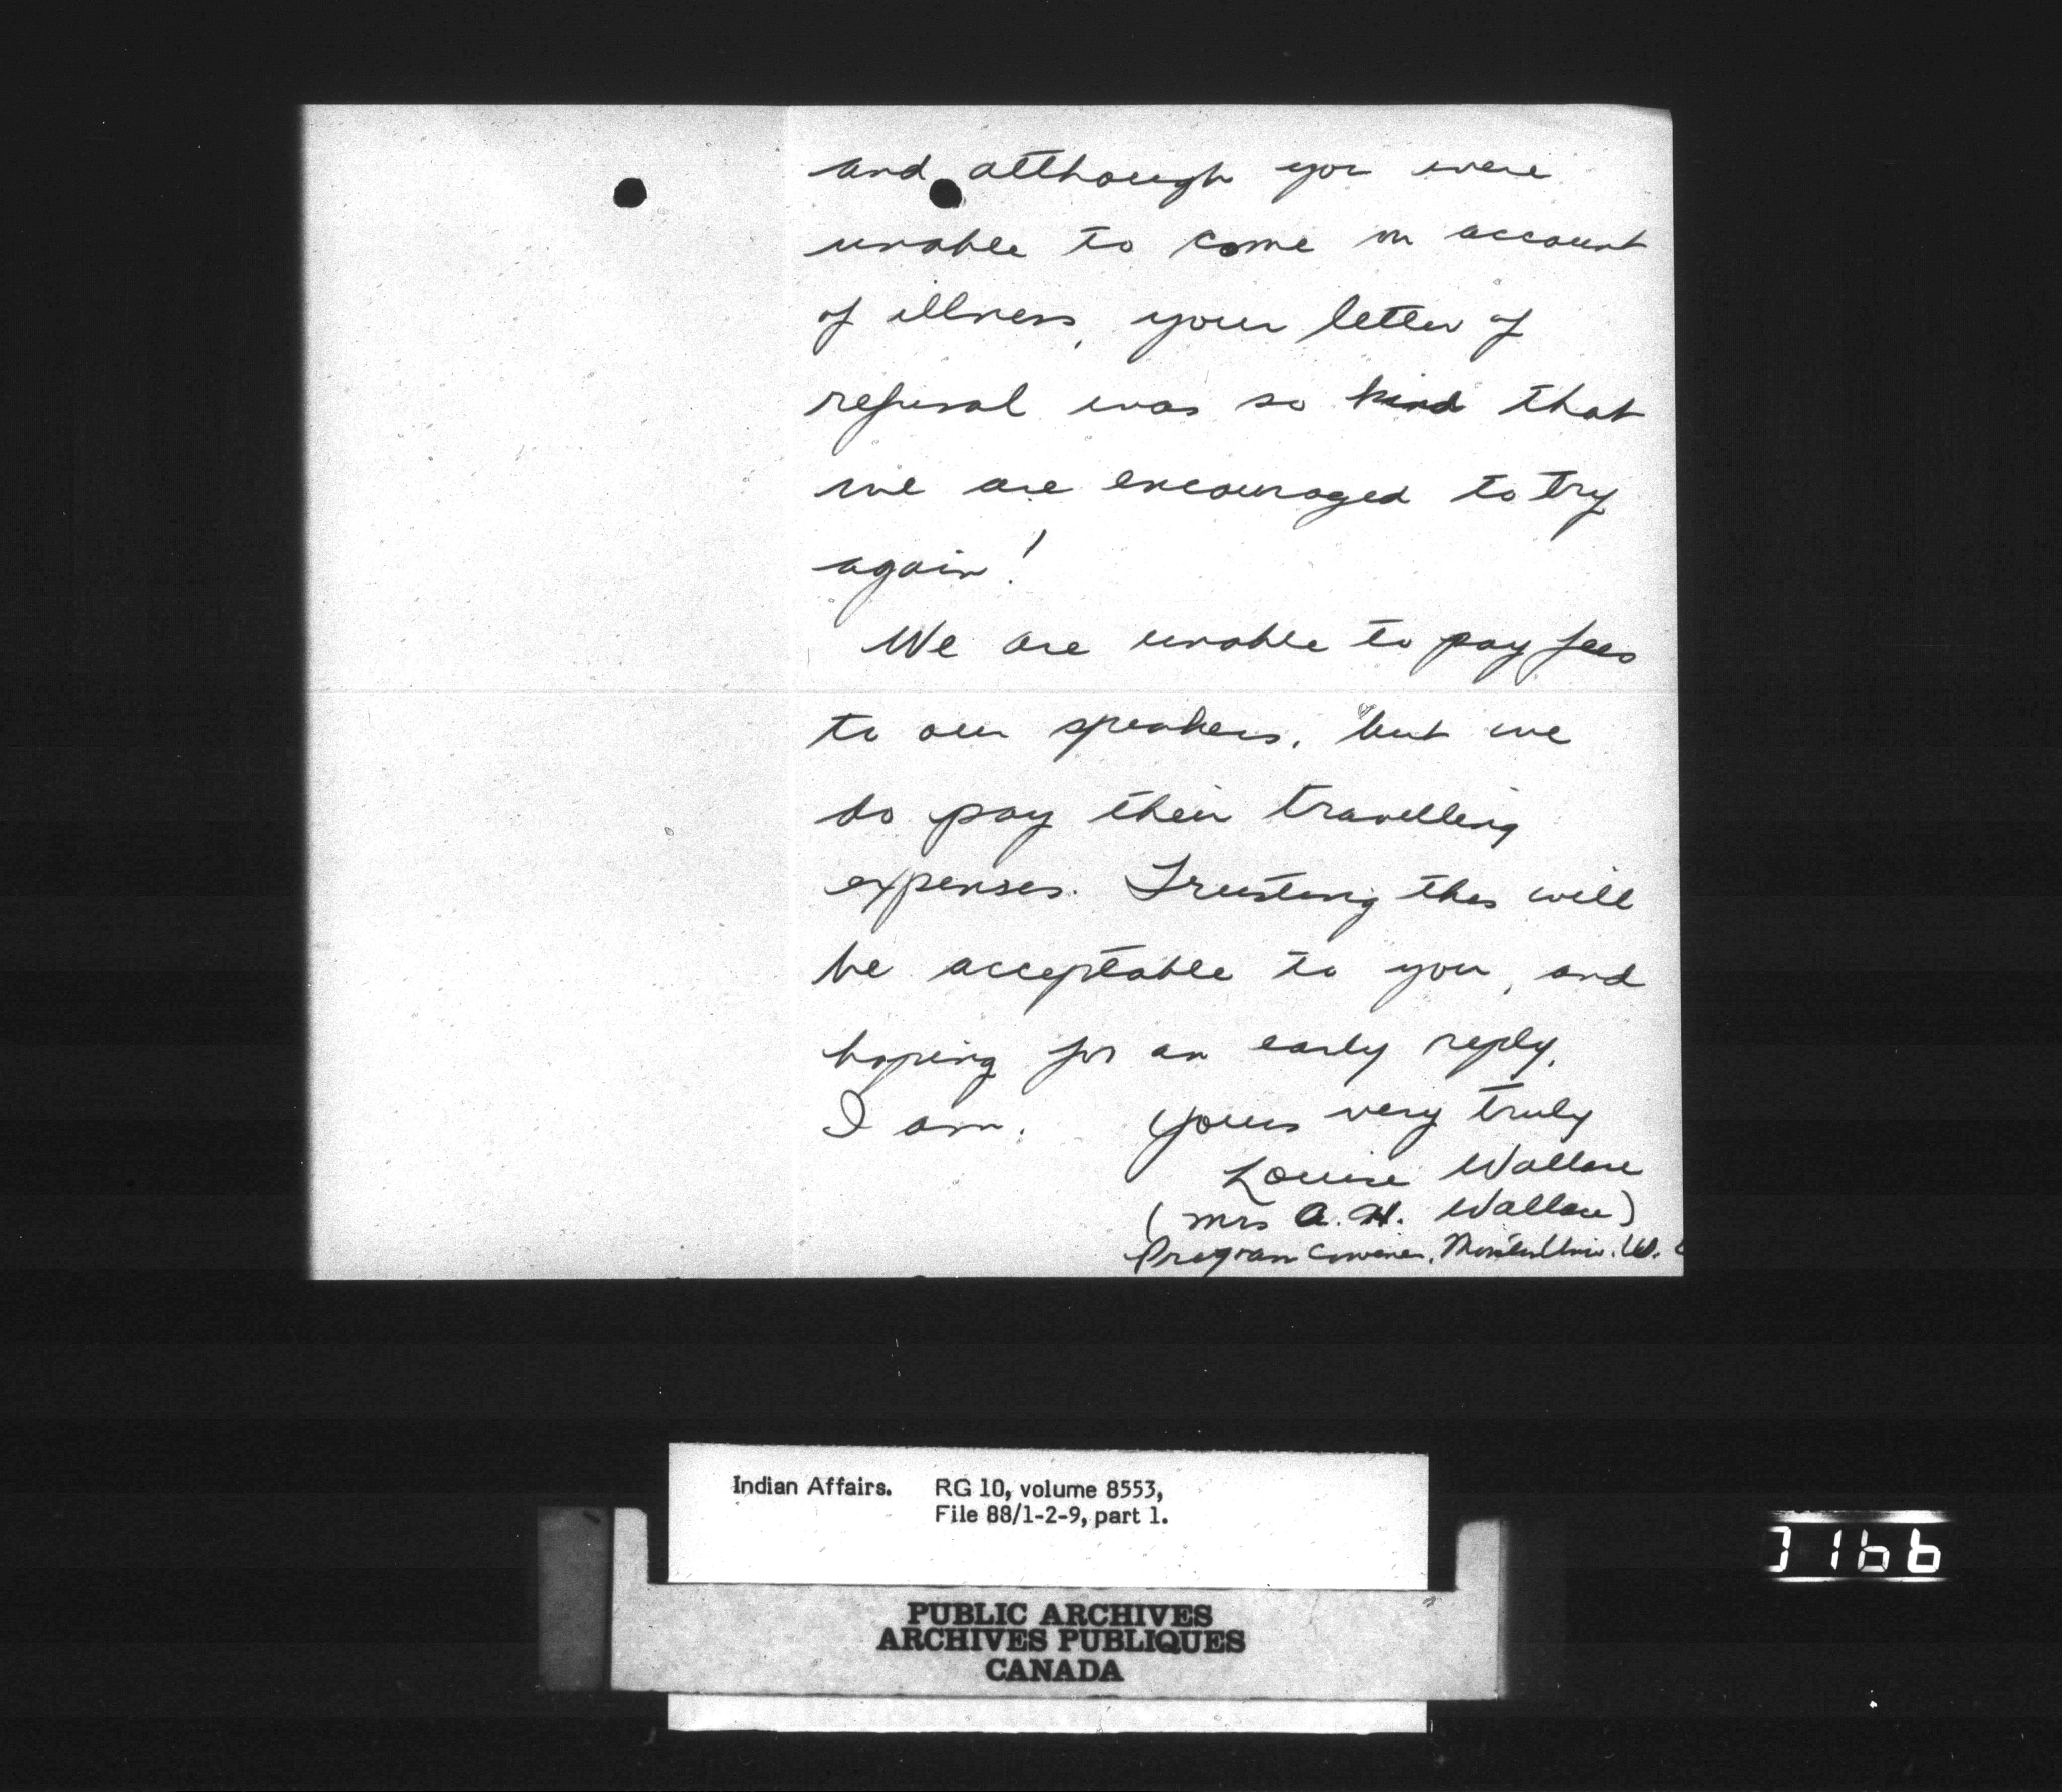 and although you were
unable to come on account
of illness, your letter of
refusal was so kind that
we are encouraged to try
again!
We are unable to pay fees
to our speakers, but we
do pay their travelling
expenses. Trusting this will
be acceptable to you, and
hoping for an early reply,
I am. Yours very truly
Louise Wallace
(Mrs A. H. Wallace)
Program Convener, Univ. W.
Indian Affairs. RG 10, volume 8553,
File 88/1-2-9, part 1.
PUBLIC ARCHIVES
ARCHIVES PUBLIQUES
CANADA
166